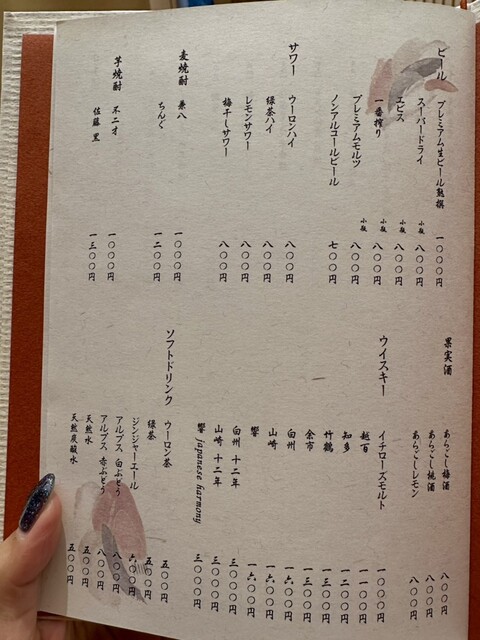 ビール
プレミアム生ビール熟撰 一〇〇〇円
スーパードライ 小瓶 八〇〇円
エビス 小瓶 八〇〇円
一番搾り 小瓶 八〇〇円
プレミアムモルツ 小瓶 八〇〇円
ノンアルコールビール 七〇〇円
サワー
ウーロンハイ 八〇〇円
緑茶ハイ 八〇〇円
レモンサワー 八〇〇円
梅干しサワー 八〇〇円
麦焼酎
兼八 一〇〇〇円
ちんぐ 一二〇〇円
芋焼酎
不二才 一〇〇〇円
佐藤 黒 一三〇〇円
果実酒
あらごし梅酒 八〇〇円
あらごし桃酒 八〇〇円
あらごしレモン 八〇〇円
ウイスキー
イチローズモルト 一〇〇〇円
越百 一一〇〇円
知多 一二〇〇円
竹鶴 一三〇〇円
余市 一三〇〇円
白州 一六〇〇円
山崎 一六〇〇円
響 一六〇〇円
白州 十二年 三〇〇〇円
山崎 十二年 三〇〇〇円
響 japanese harmony 三〇〇〇円
ソフトドリンク
ウーロン茶 五〇〇円
緑茶 五〇〇円
ジンジャーエール 六〇〇円
アルプス 白ぶどう 八〇〇円
アルプス 赤ぶどう 八〇〇円
天然水 五〇〇円
天然炭酸水 五〇〇円